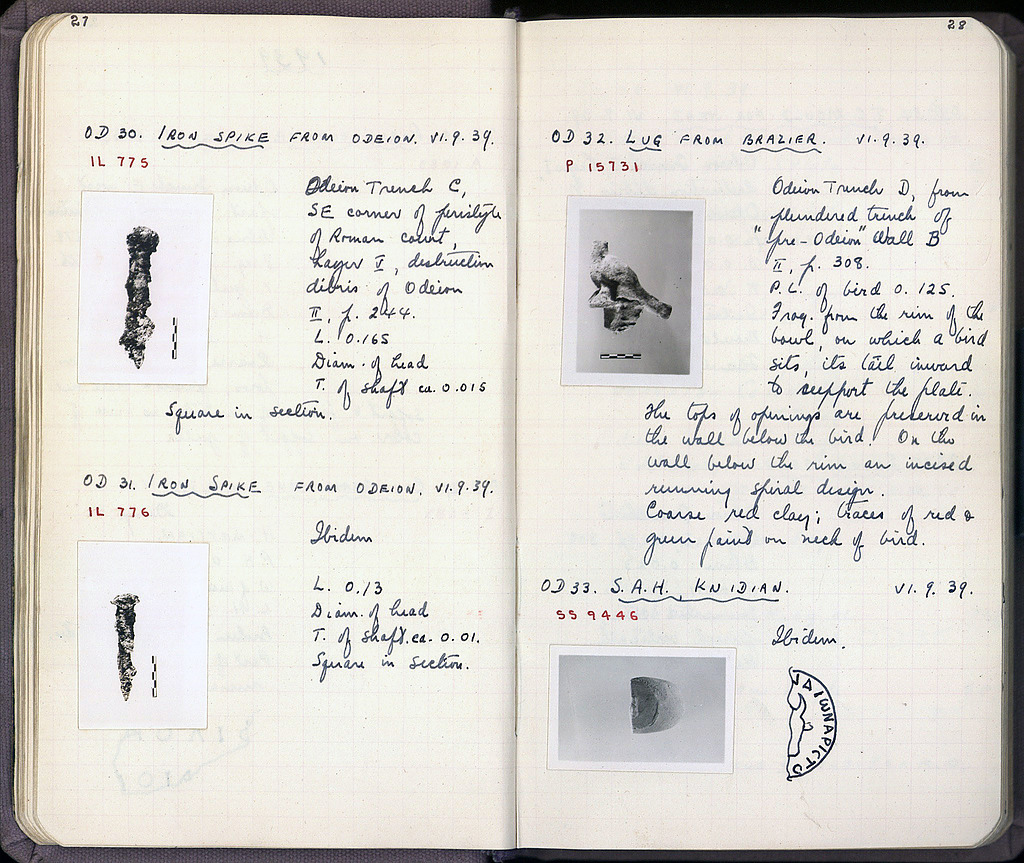 27
OD 30. IRON SPIKE FROM ODEION. VI.9.39.
IL 775
Odeion Trench C,
SE corner of peristyle
of Roman court,
Layer II, destruction
debris of Odeion
II, p. 244.
L. 0.165
Diam. of head
T. of shaft ca. 0.015
Square in section.
OD 31. IRON SPIKE FROM ODEION. VI.9.39.
IL 776
Ibidem
L. 0.13
Diam. of head
T. of shaft ca. 0.01.
Square in section.
28
OD 32. LUG FROM BRAZIER. VI.9.39.
P 15731
Odeion Trench D, from
plundered trench of
"pre-Odeion" Wall B
II, p. 308.
P.L. of bird 0.125.
Frag. from the rim of the
bowl, on which a bird
sits, its tail inward
to support the plate.
The tops of openings are preserved in
the wall below the bird. On the
wall below the rim an incised
running spiral design.
Coarse red clay; traces of red &
green paint on neck of bird.
OD 33. S.A.H., KNIDIAN. VI.9.39.
SS 9446
Ibidem.